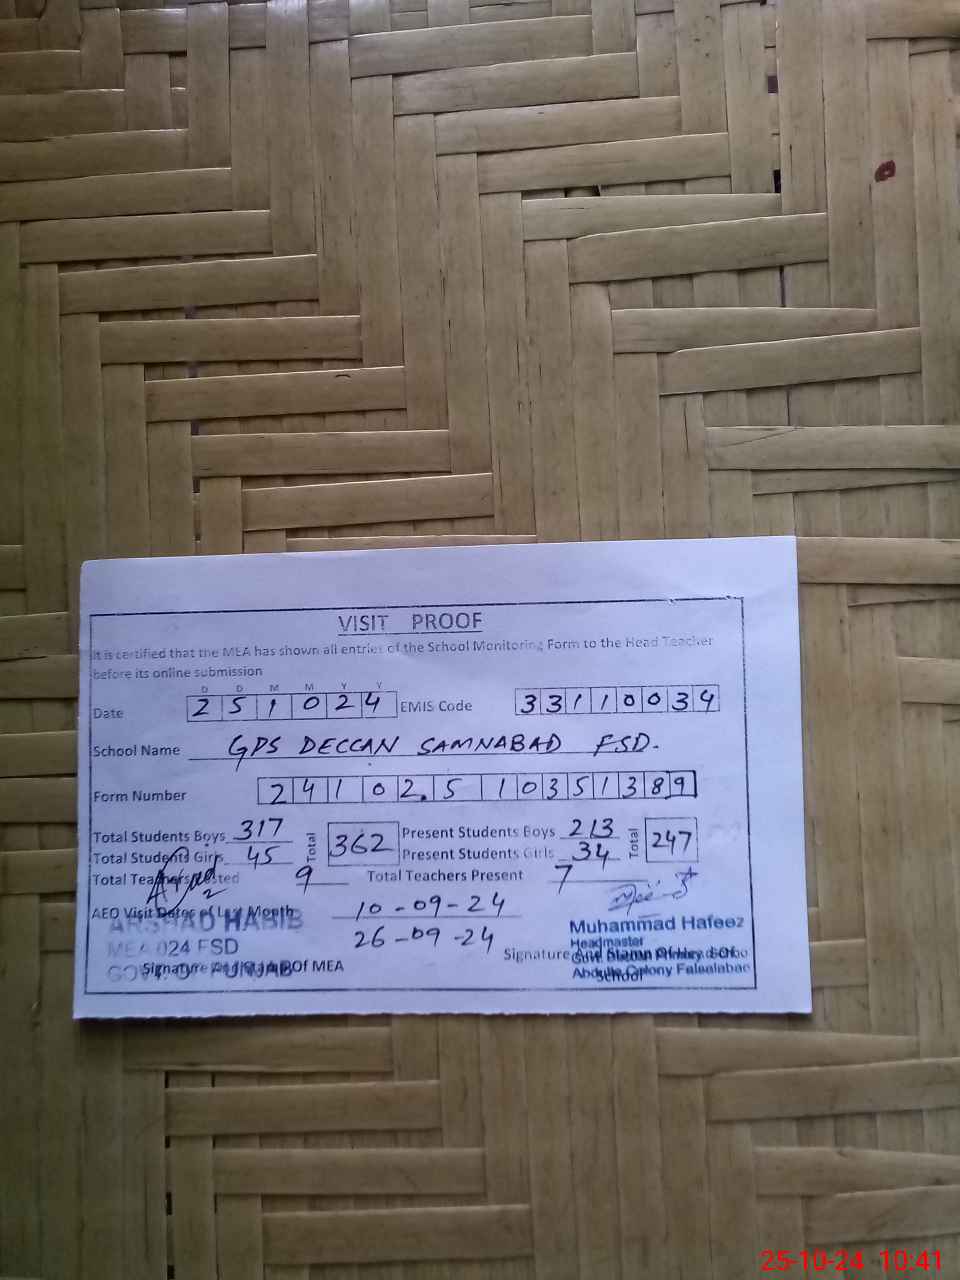 VISIT PROOF
It is certified that the MEA has shown all entries of the School Monitoring Form to the Head Teacher
before its online submission
D D M M Y Y
Date 2 5 1 0 2 4 EMIS Code 3 3 1 1 0 0 3 4
School Name GPS DECCAN SAMNABAD FSD.
Form Number 2 4 1 0 2 5 1 0 3 5 1 3 8 9
Total Students Boys 317 Total 362 Present Students Boys 213 Total 247
Total Students Girls 45 Present Students Girls 34
Total Teachers Posted 9 Total Teachers Present 7
AEO Visit Dates of Last Month 10-09-24
26-09-24
ARSHAD HABIB
MEA 024 FSD
GOVT. OF PUNJAB
Signature And Stamp Of MEA
Muhammad Hafeez
Headmaster
Signature And Stamp Of Head Of
School
Abdulla Colony Faisalabad
25-10-24 10:41